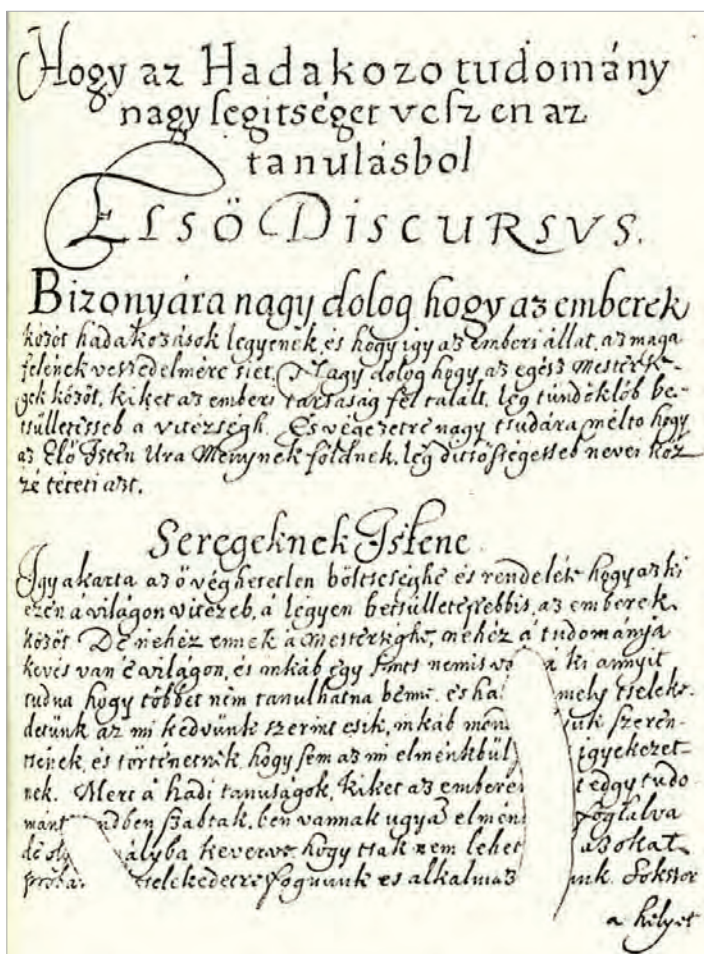 Hogy az Hadakozo tudomány
nagy segitséget veszen az
tanulásbol
ELSÖ DISCURSVS.
Bizonyára nagy dolog hogy az emberek
közöt hadakozások legyenek, es hogy igy az emberi állat, az maga
felének veszedelmére siet. Nagy dolog hogy az egész mesterse-
gek közöt, kiket az emberi tarsaság fel talált, leg tündöklöb be-
tsülletesseb a vitezségh. Es vegezetre nagy tsudára mélto hogy
az Elö Isten Ura Menynek földnek, leg ditsösségesseb nevei köz
zé téteti azt.
Seregeknek Istene
Igy akarta az ö véghetetlen böltseséghe és rendelése hogy az ki
ezen a világon vitezeb, á légyen betsülletessebbis, az emberek
közöt De nehéz ennek a mestersighe, nehéz á tudománya
kevés van é világon, es inkáb egy sints nemis á ki annyit
tudna hogy többet nem tanulhatna benne. es ha mely tseleke-
detünk az mi kedvünk szerint esik, inkáb szeren-
tsének, es történetnek, hogy sem az mi elménkbül igyekezet-
nek. Mert á hadi tanuságok, kiket az ember t edgy tudo
mánt ben szabtak, ben vannak ugyan elmén foglalva
de ályba keverve hogy tsak nem lehet azokat
proba tselekedetre fognunk es alkalmaz unk. Sokszor
a helyet